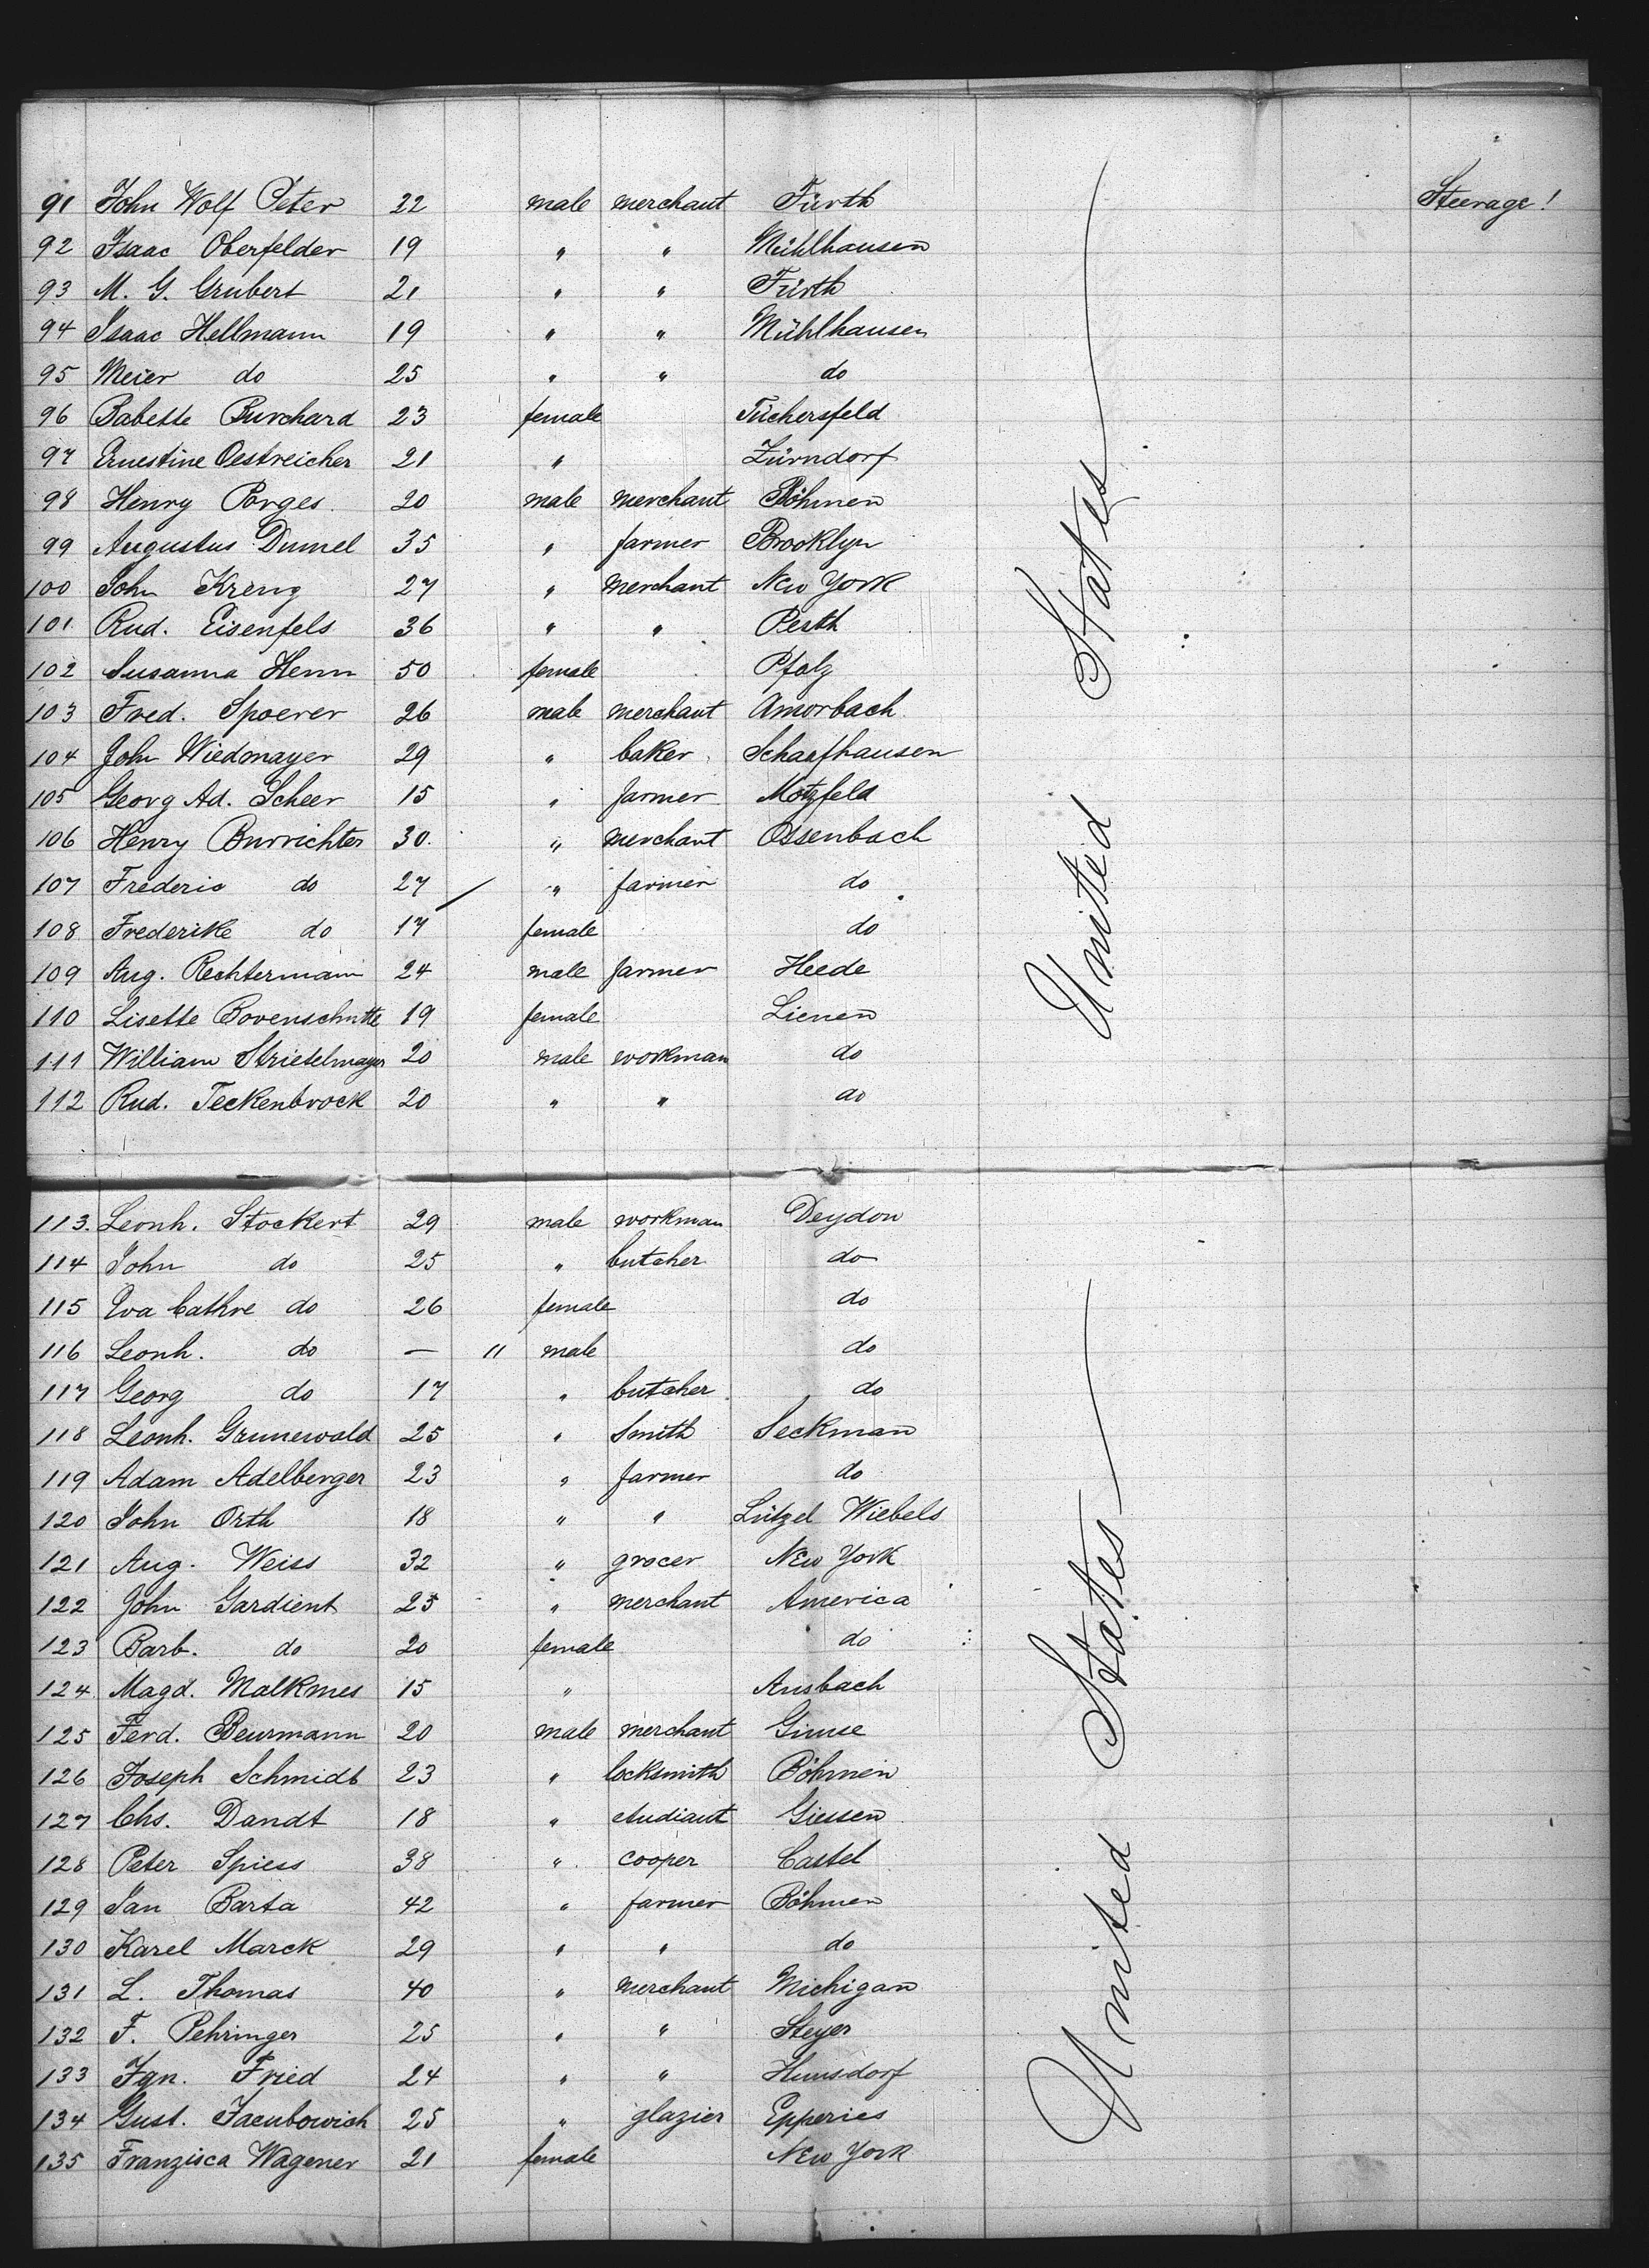 91 John Wolf Peter 22 male merchant Fürth Steerage!
92 Isaac Oberfelder 19 " " Mühlhausen
93 M. G. Grubert 21 " " Fürth
94 Isaac Hellmann 19 " " Mühlhausen
95 Meier do 25 " " do
96 Babette Burchard 23 female Tüchersfeld
97 Ernestine Oestreicher 21 " Zürndorf
98 Henry Porges 20 male merchant Böhmen
99 Augustus Dumel 35 " farmer Brooklyn
100 John Kreng 27 " merchant New York
101 Rud. Eisenfels 36 " " Perth
102 Susanna Henn 50 female Pfalz
103 Fred. Spoerer 26 male merchant Amorbach
104 John Wiedmayer 29 " baker Schaafhausen
105 Georg Ad. Scheer 15 " farmer Motzfeld
106 Henry Burrichter 30. " merchant Ossenbach
107 Frederic do 27 " farmer do
108 Frederike do 17 female do
109 Aug. Rechtermann 24 male farmer Heede
110 Lisette Bovenschutte 19 female Lienen
111 William Strietelmayer 20 male workman do
112 Rud. Teckenbrock 20 " " do
United States
113. Leonh. Stockert 29 male workman Deydon
114 John do 25 " butcher do
115 Eva Cathre do 26 female do
116 Leonh. do — 11 male do
117 Georg do 17 " butcher do
118 Leonh. Grunewald 25 " Smith Seckman
119 Adam Adelberger 23 " farmer do
120 John Orth 18 " " Lützel Wiebels
121 Aug. Weiss 32 " grocer New York
122 John Gardient 25 " merchant America
123 Barb. do 20 female do
124 Magd. Malkmes 15 " Ansbach
125 Ferd. Beurmann 20 male merchant Gimse
126 Joseph Schmidt 23 " locksmith Böhmen
127 Chs. Dandt 18 " studiant Giessen
128 Peter Spiess 38 " cooper Castel
129 Jan Barta 42 " farmer Böhmen
130 Karel Marek 29 " " do
131 L. Thomas 40 " merchant Michigan
132 F. Pehringer 25 " " Steyer
133 Ign. Fried 24 " " Hunsdorf
134 Gust. Jacubowich 25 " glazier Epperies
135 Franzisca Wagener 21 female New York
United States